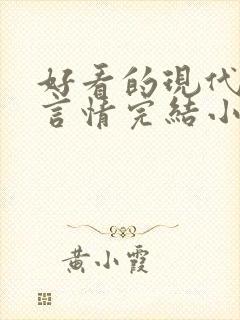 好看的現代
言情完結小
黃小霞